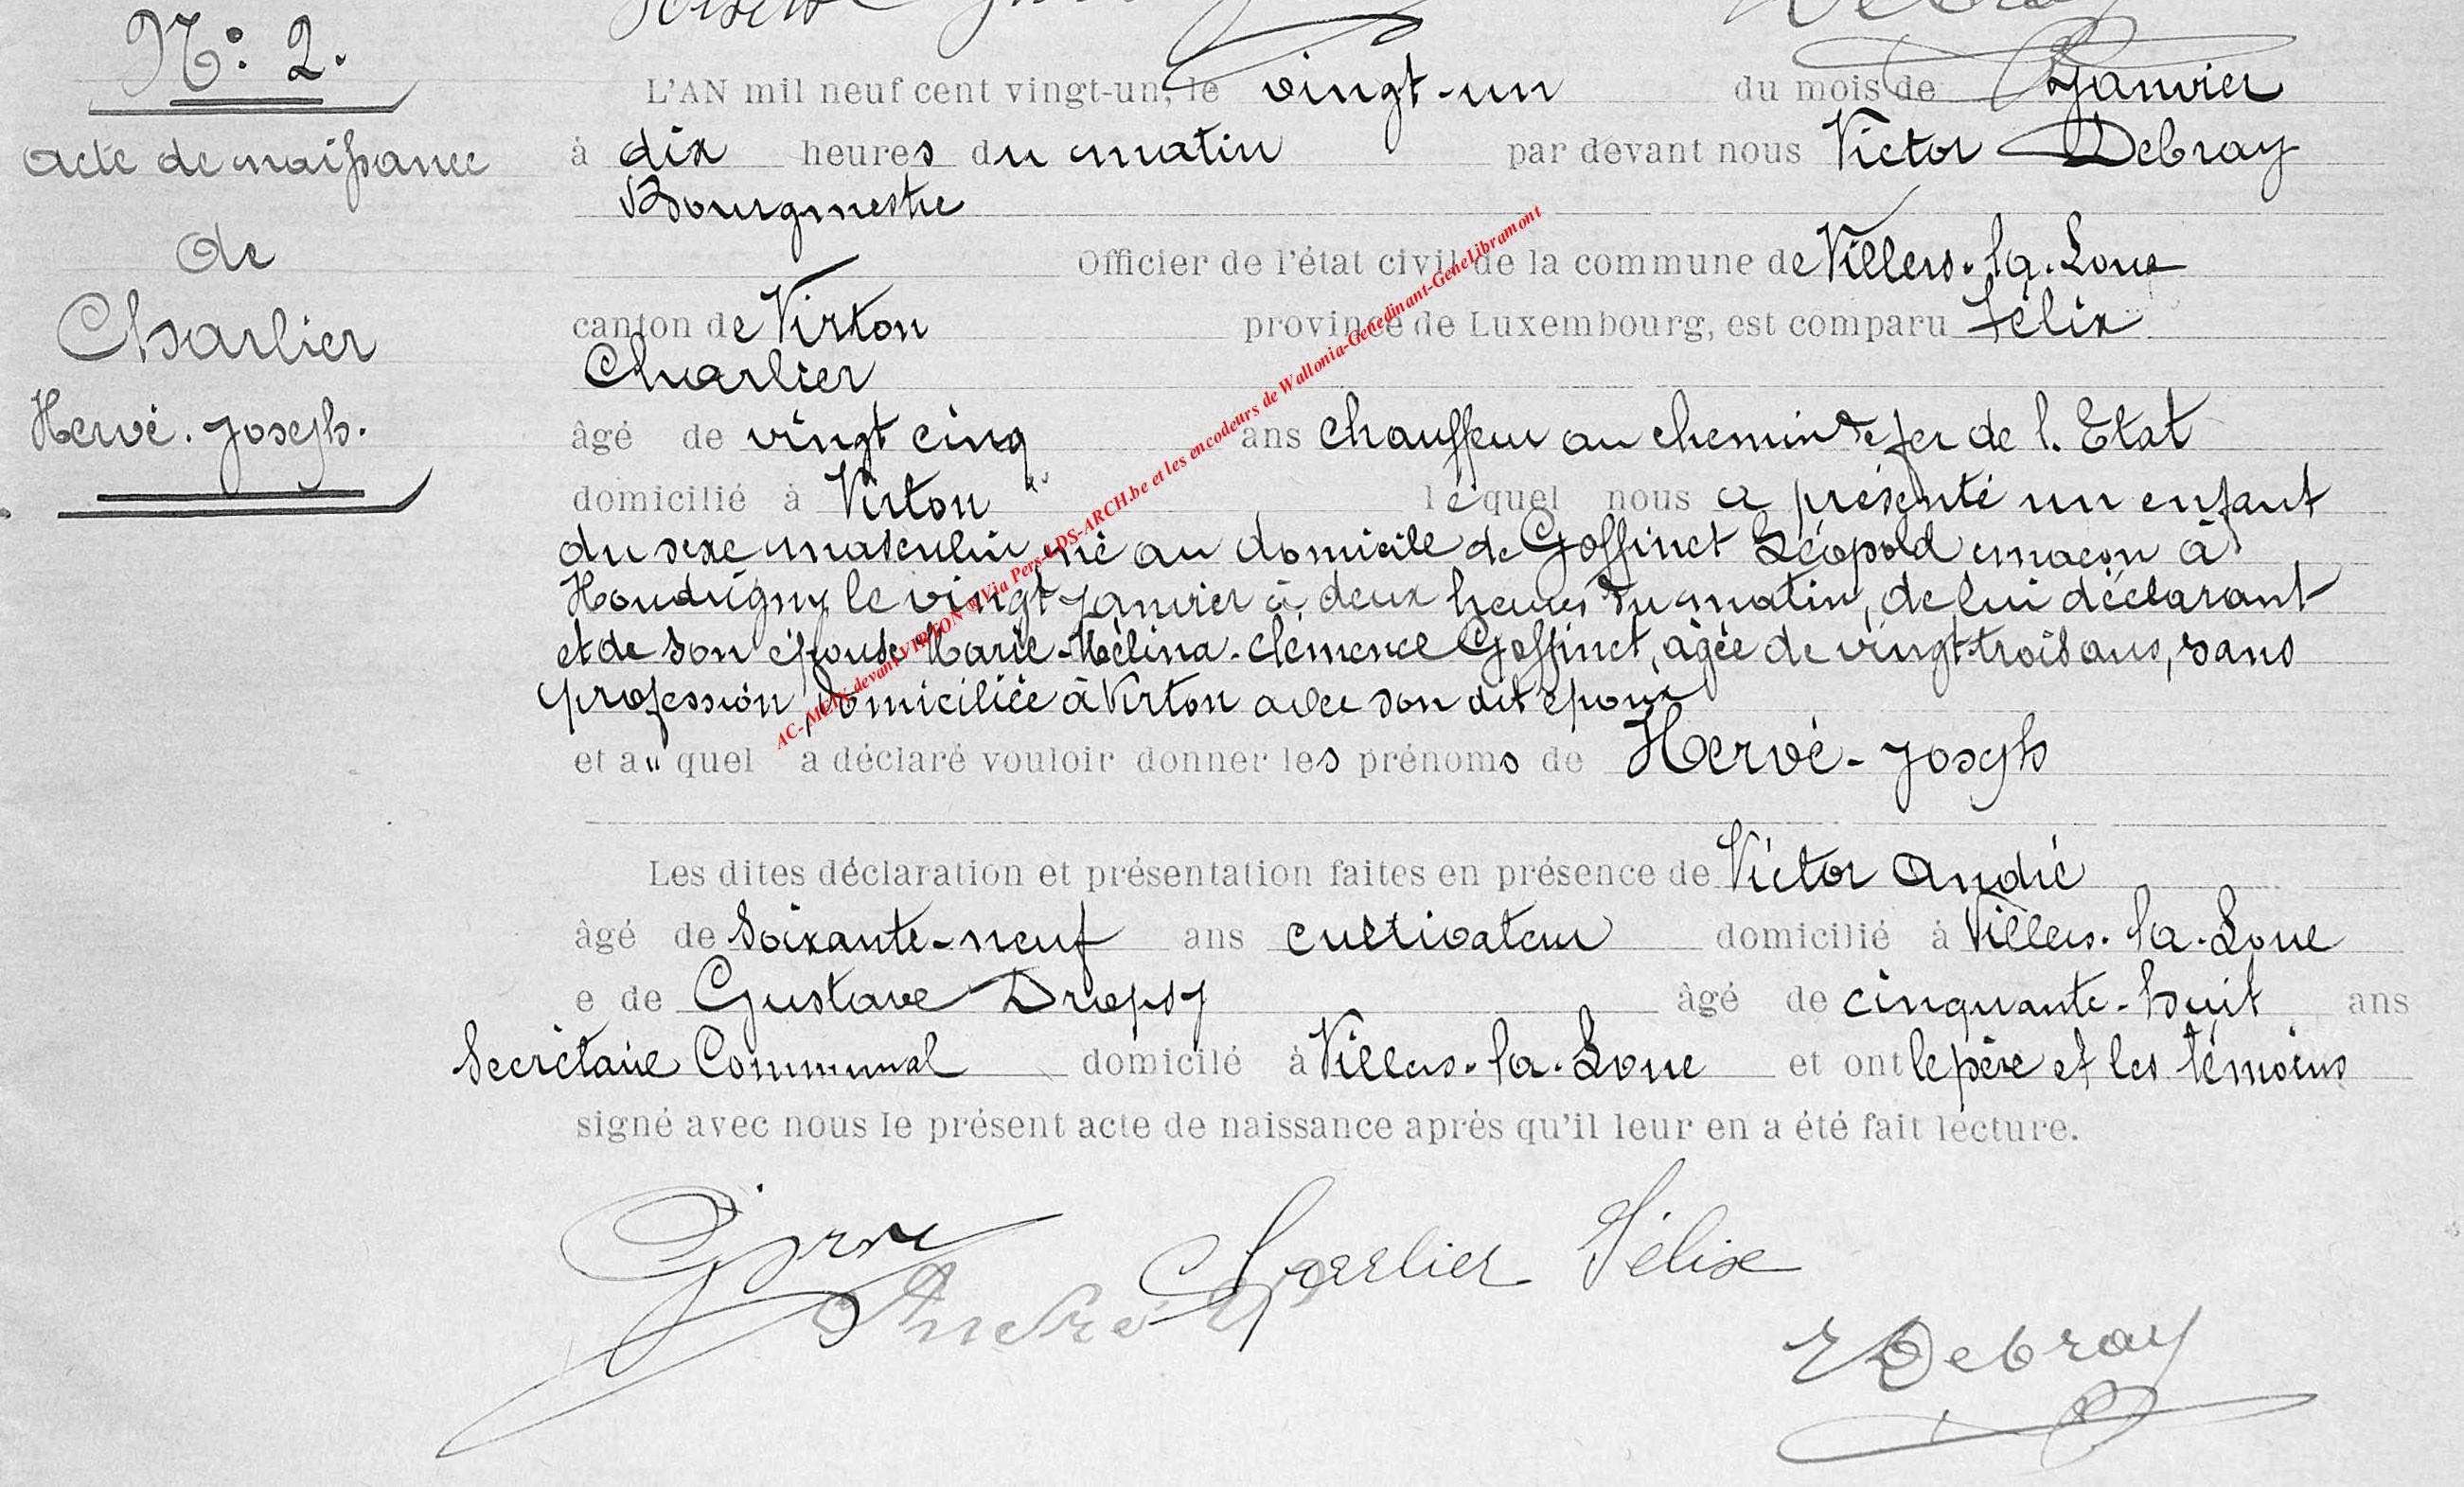 N°: 2.
Acte de naissance
de
Charlier
Hervé. Joseph.
L'AN mil neuf cent vingt-un, le vingt-un du mois de Janvier
à dix heures du matin par devant nous Victor Debray
Bourgmestre
Officier de l'état civil de la commune de Villers-la-Loue
canton de Virton province de Luxembourg, est comparu Félix
Charlier
âgé de vingt cinq ans chauffeur au chemin de fer de l'Etat
domicilié à Virton lequel nous a présenté un enfant
du sexe masculin, né au domicile de Goffinet Léopold maçon à
Houdrigny le vingt janvier à deux heures du matin, de lui déclarant
et de son épouse Marie-Mélina-Clémence Goffinet, âgée de vingt-trois ans, sans
profession domiciliée à Virton avec son dit époux
et au quel a déclaré vouloir donner les prénoms de Hervé-Joseph
Les dites déclaration et présentation faites en présence de Victor André
âgé de soixante-neuf ans cultivateur domicilié à Villers-la-Loue
e de Gustave Dropsy âgé de cinquante-huit ans
Secrétaire Communal domicilé à Villers-la-Loue et ont le père et les témoins
signé avec nous le présent acte de naissance après qu'il leur en a été fait lecture.
Charlier Félix
André V
Debray
AC-MEIX-devant-VIRTON ®Via Pers-LDS-ARCH.be et les encodeurs de Wallonia-Genedinant-GeneLibramont